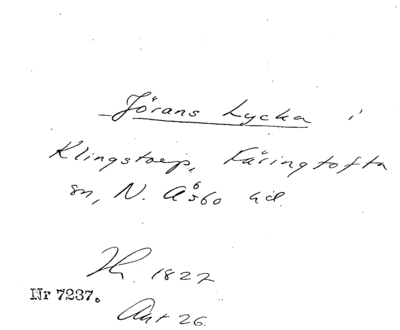 Jörans Lycka i
Klingstorp, Färingtofta
sn, N. Åsbo hd.
1827
Nr 7237.
Akt 26.